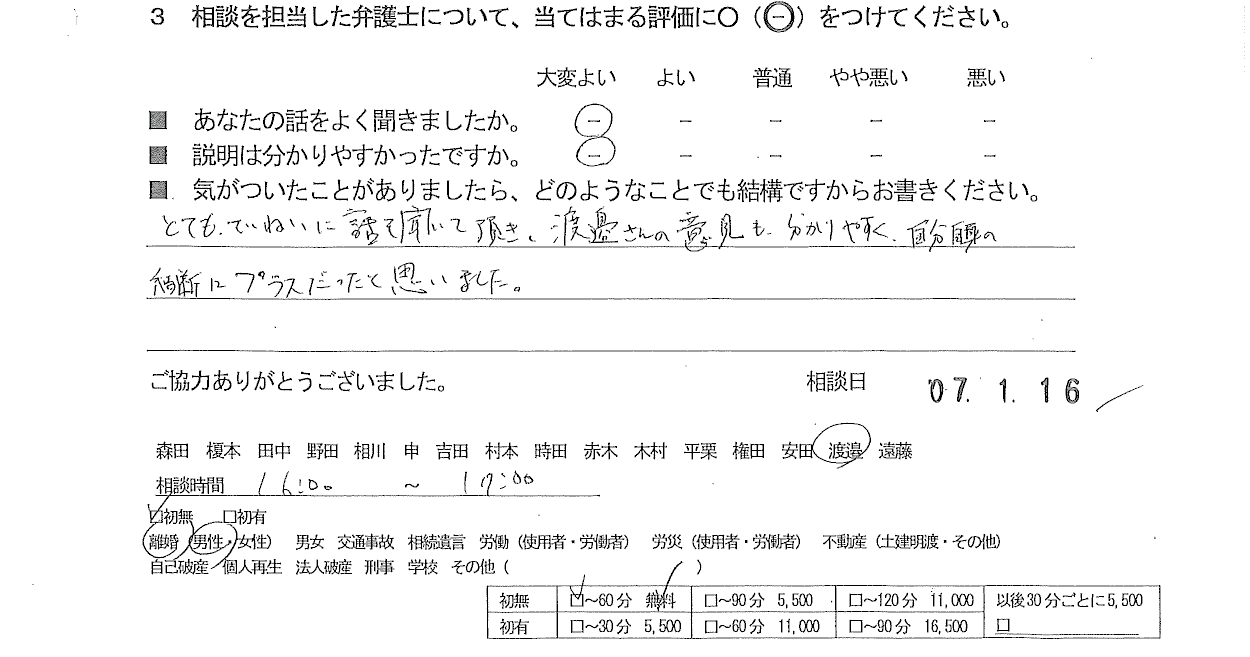 3 相談を担当した弁護士について、当てはまる評価に〇（㊀）をつけてください。
大変よい よい 普通 やや悪い 悪い
■ あなたの話をよく聞きましたか。 － － － － －
■ 説明は分かりやすかったですか。 － － － － －
■ 気がついたことがありましたら、どのようなことでも結構ですからお書きください。
とても、ていねいに話を聞いて頂き、渡邉さんの意見も、分かりやすく、自分自身の
判断にプラスだったと思いました。
ご協力ありがとうございました。 相談日 '07. 1. 16
森田 榎本 田中 野田 相川 申 吉田 村本 時田 赤木 木村 平栗 権田 安田 渡邉 遠藤
相談時間 16:00 ～ 17:00
□初無 □初有
離婚（男性・女性） 男女 交通事故 相続遺言 労働（使用者・労働者） 労災（使用者・労働者） 不動産（土建明渡・その他）
自己破産 個人再生 法人破産 刑事 学校 その他（ ）
初無 □～60分 無料 □～90分 5,500 □～120分 11,000 以後30分ごとに5,500
初有 □～30分 5,500 □～60分 11,000 □～90分 16,500 □